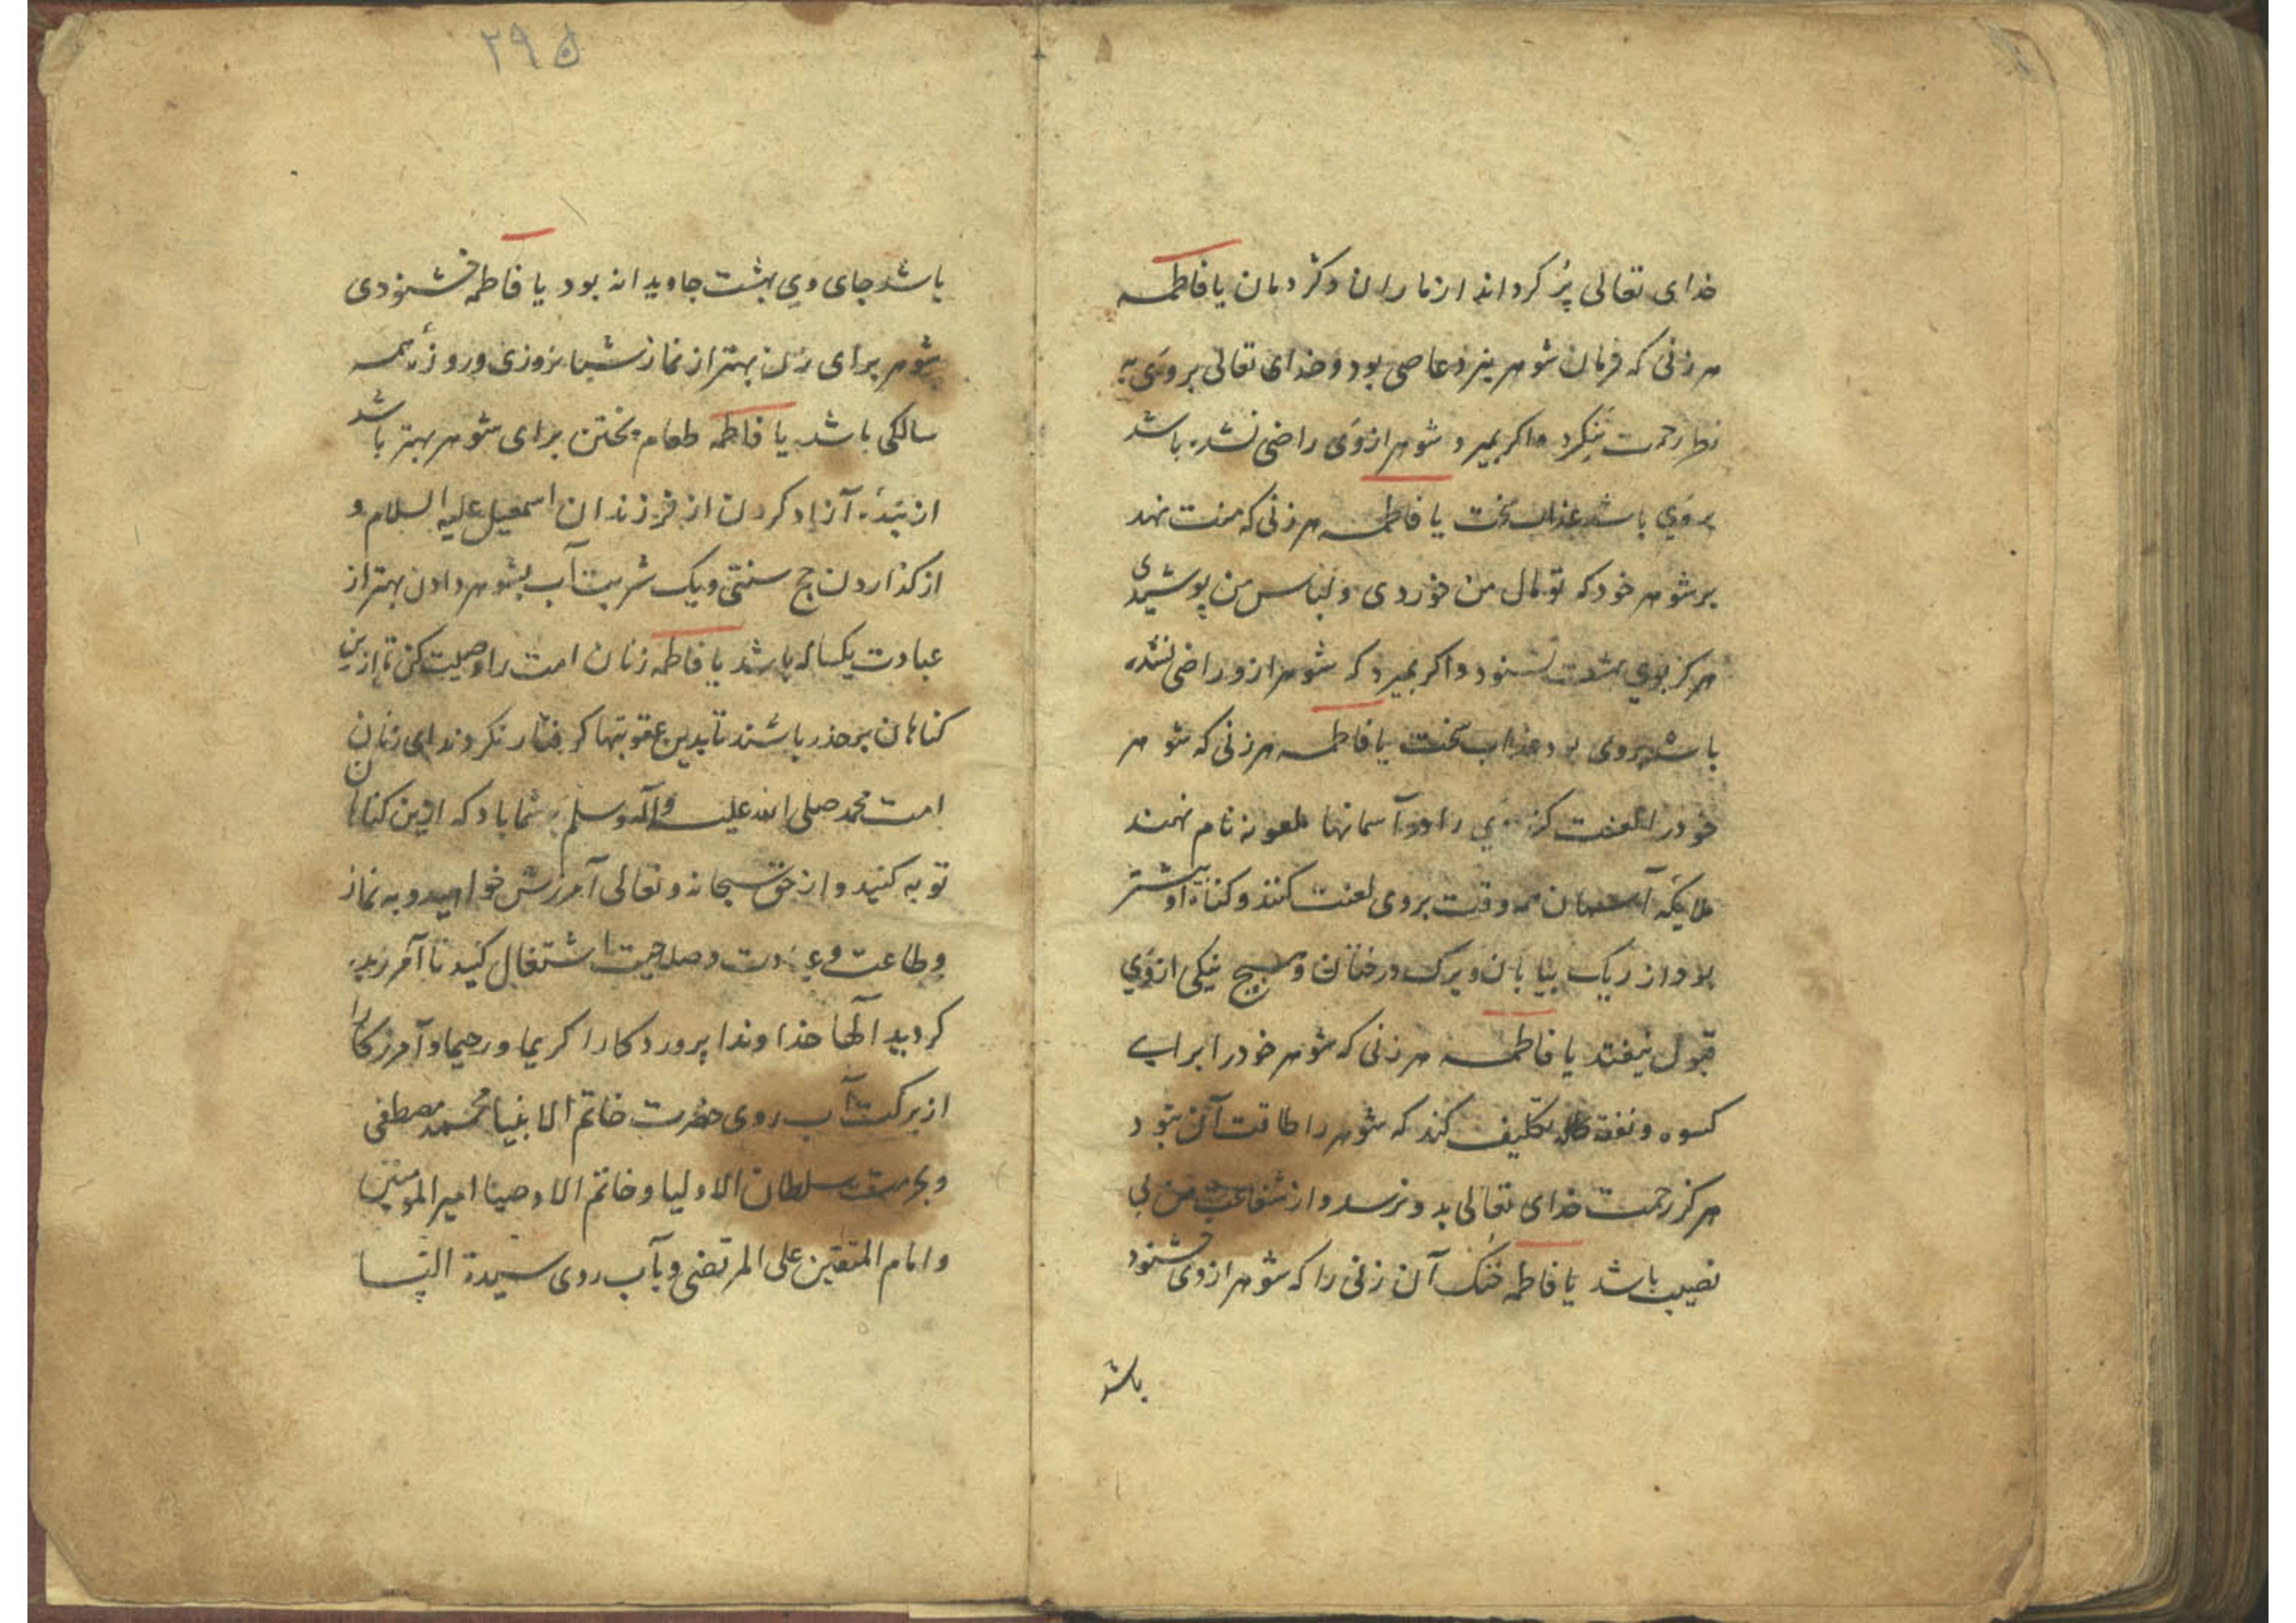 خدای تعالی پُر کرداند از ماران و کژدمان یا فاطمه
هر زنی که فرمان شوهر نبرد عاصی بود و خدای تعالی بر وی به
نظر رحمت ننکرد و اکر بمیرد و شوهر از وی راضی نشده باشد
بر وی باشد عذاب سخت یا فاطمه هر زنی که منت نهد
بر شوهر خود که تو مال من خوردی و لباس من پوشیدی
هرکز بوی بهشت نشنود و اکر بمیرد که شوهر ازو راضی نشده
باشد بر وی بود عذاب سخت یا فاطمه هر زنی که شوهر
خود را لعنت کند وی را در آسمانها ملعونه نام نهند
ملایکهٔ آسمان همه وقت بر وی لعنت کنند و کناه او بیشتر
بود از ریک بیابان و برک درختان و هیچ نیکی از وی
قبول نیفتد یا فاطمه هر زنی که شوهر خود را برای
کسوه و نفقه تکلیف کند که شوهر را طاقت آن نبود
هرکز رحمت خدای تعالی بدو نرسد و از شفاعت من بی
نصیب باشد یا فاطمه خنک آن زنی را که شوهر از وی خشنود
باشد
۲۹۵
باشد جای وی بهشت جاویدانه بود یا فاطمه خشنودی
شوهر برای زن بهتر از نماز شبانروزی و روزهٔ همه
سالکی باشد یا فاطمه طعام پختن برای شوهر بهتر باشد
از بندهٔ آزاد کردن از فرزندان اسمعیل علیه السلام و
از کذاردن حج سنتی و یک شربت آب بشوهر دادن بهتر از
عبادت یکساله باشد یا فاطمه زنان امت را وصیت کن تا ازین
کناهان بر حذر باشند تا بدین عقوبتها کرفتار نکردند ای زنان
امت محمد صلی الله علیه وآله وسلم بر شما باد که ازین کناهان
توبه کنید و از حق سبحانه و تعالی آمرزش خواهید و به نماز
و طاعت و عبادت و صلاحیت اشتغال کنید تا آمرزیده
کردید آلها خداوندا پروردکارا کریما و رحیما و آمرزکارا
از برکت آب روی حضرت خاتم الانبیا محمد مصطفی
و بحرمت سلطان الاولیا و خاتم الاوصیا امیر المومنین
و امام المتقین علی المرتضی و بآب روی سیدة النسا